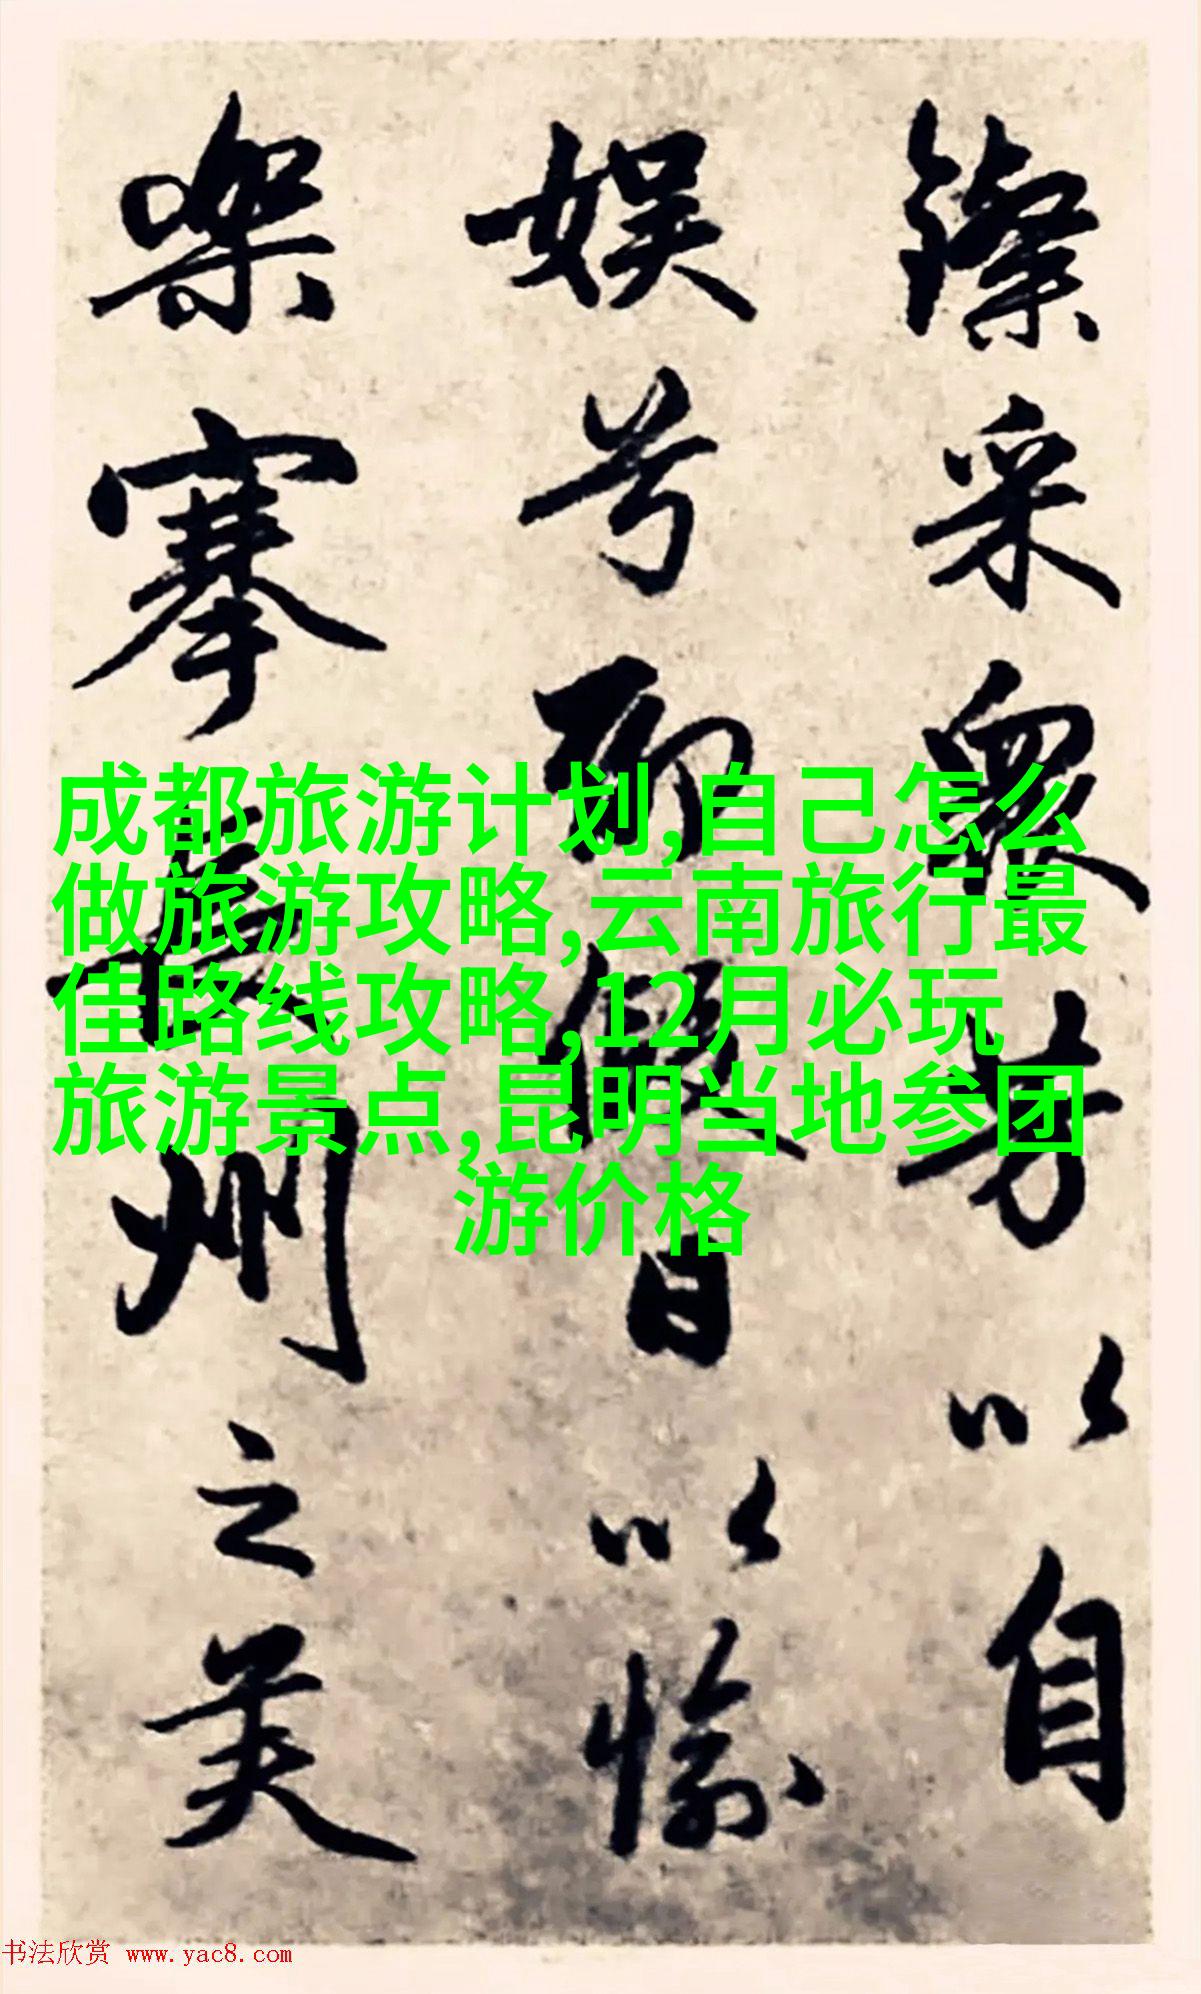 鑠采眾芳以自
娱兮聊假日以愉
樂搴長州之美
成都旅游计划,自己怎么
做旅游攻略,云南旅行最
佳路线攻略,12月必玩
旅游景点,昆明当地参团
游价格
书法欣赏 www.yac8.com